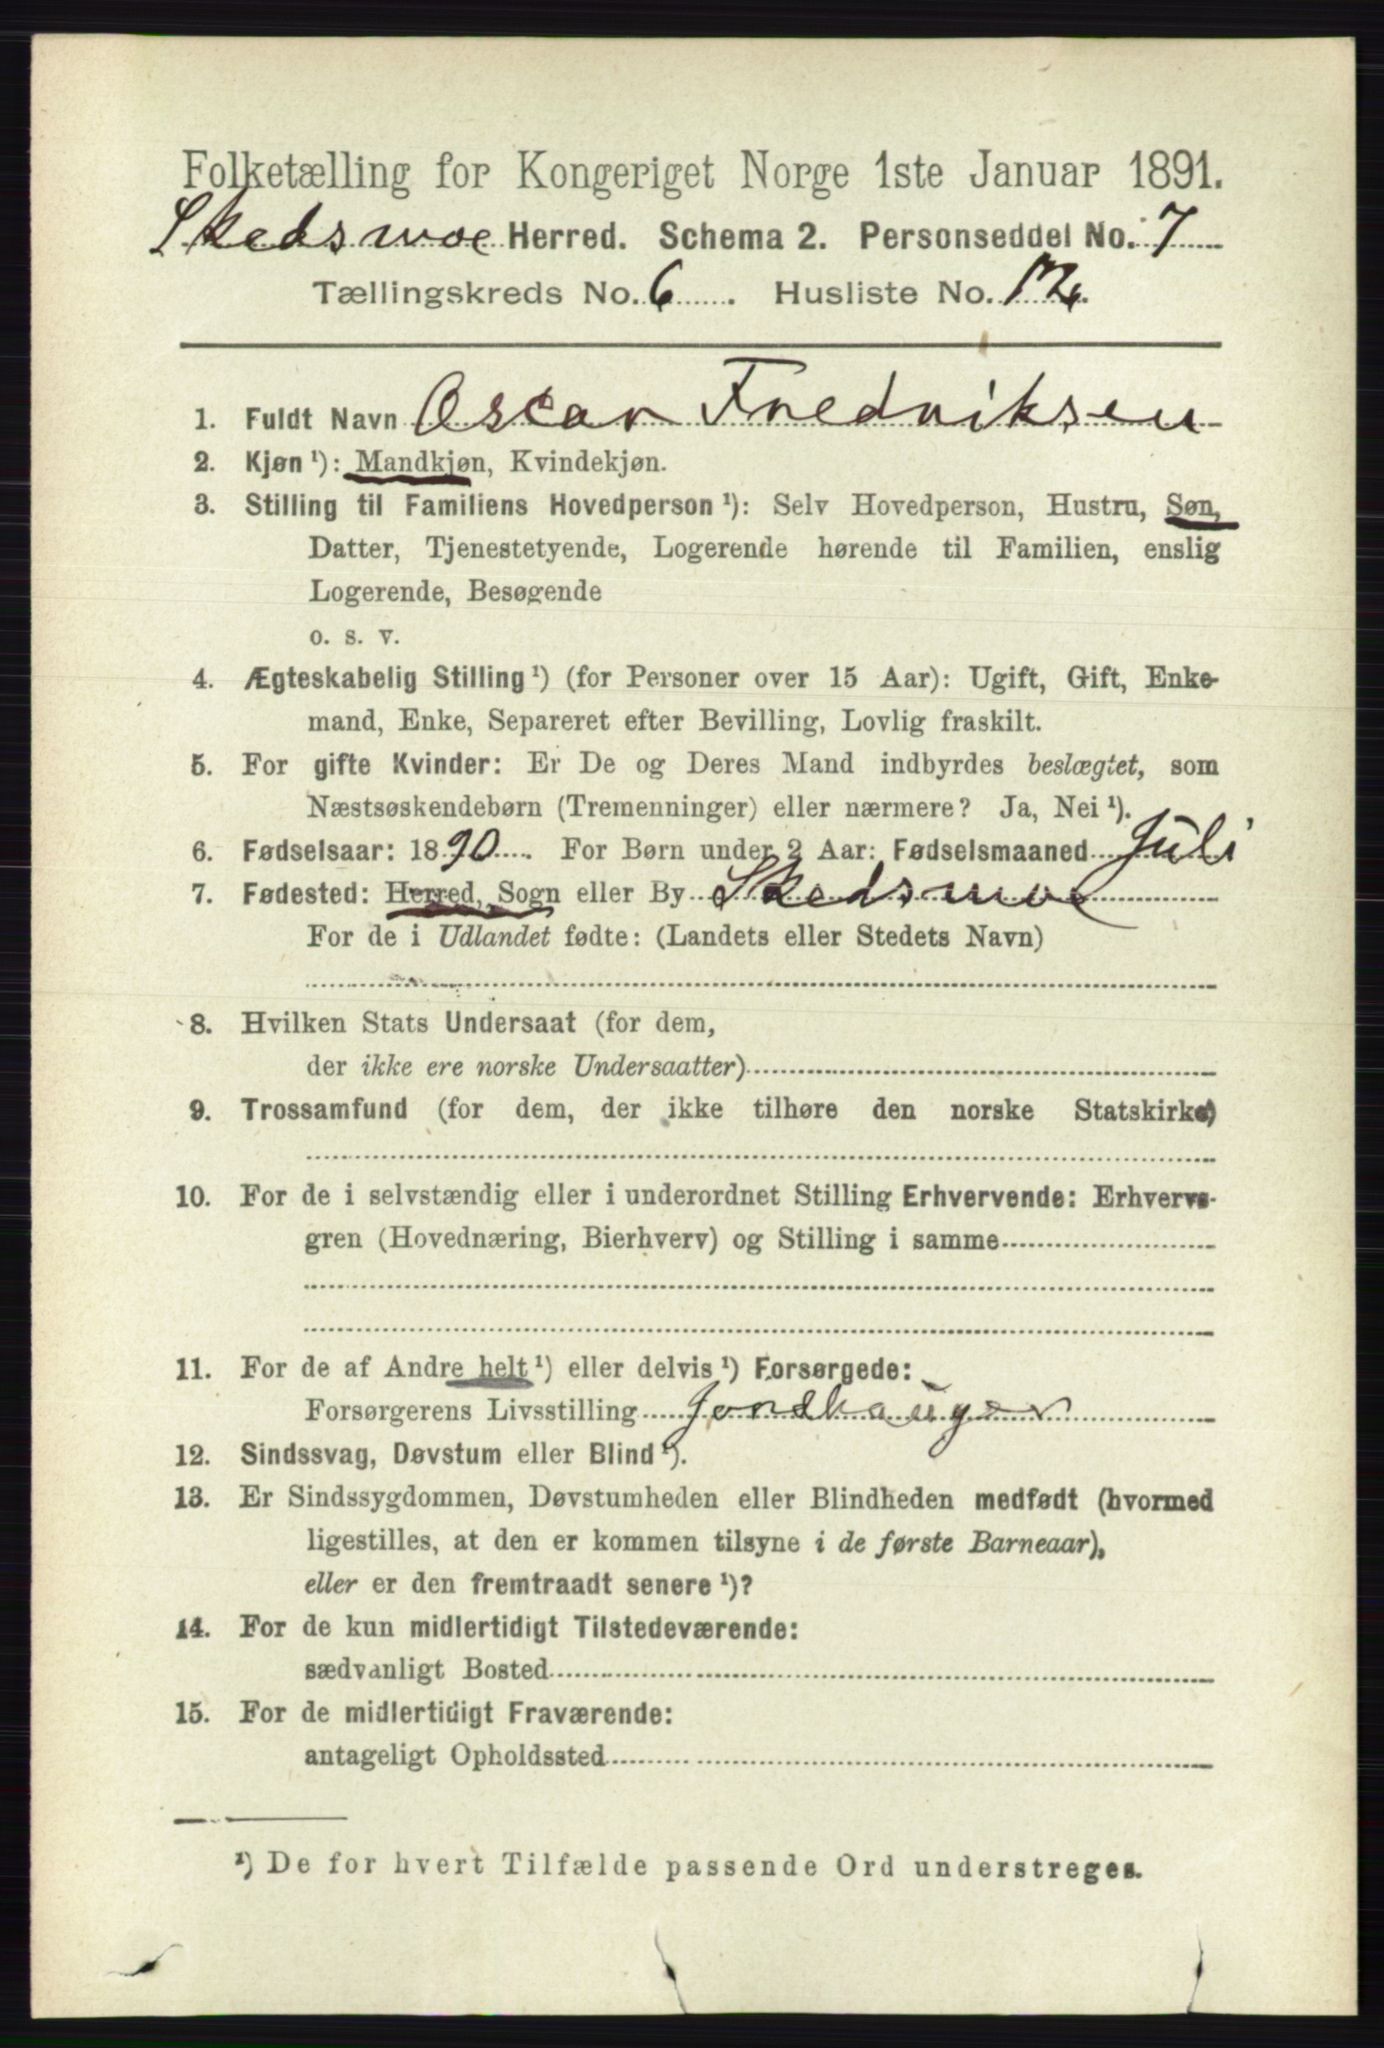 Folketælling for Kongeriget Norge 1ste Januar 1891.
Skedsmoe Herred. Schema 2. Personseddel No. 7
Tællingskreds No. 6. Husliste No.
1. Fuldt Navn Oscar Fredriksen
2. Kjøn ¹): Mandkjøn, Kvindekjøn.
3. Stilling til Familiens Hovedperson ¹): Selv Hovedperson, Hustru, Søn,
Datter, Tjenestetyende, Logerende hørende til Familien, enslig
Logerende, Besøgende
o. s. v.
4. Ægteskabelig Stilling ¹) (for Personer over 15 Aar): Ugift, Gift, Enke-
mand, Enke, Separeret efter Bevilling, Lovlig fraskilt.
5. For gifte Kvinder: Er De og Deres Mand indbyrdes beslægtet, som
Næstsøskendebørn (Tremenninger) eller nærmere? Ja, Nei ¹).
6. Fødselsaar: 1890. For Børn under 2 Aar: Fødselsmaaned Juli
7. Fødested: Herred, Sogn eller By Skedsmoe
For de i Udlandet fødte: (Landets eller Stedets Navn)
8. Hvilken Stats Undersaat (for dem,
der ikke ere norske Undersaatter)
9. Trossamfund (for dem, der ikke tilhøre den norske Statskirke)
10. For de i selvstændig eller i underordnet Stilling Erhvervende: Erhvervs-
gren (Hovednæring, Bierhverv) og Stilling i samme
11. For de af Andre helt ¹) eller delvis ¹) Forsørgede:
Forsørgerens Livsstilling Jordbruger
12. Sindssvag, Døvstum eller Blind ¹).
13. Er Sindssygdommen, Døvstumheden eller Blindheden medfødt (hvormed
ligestilles, at den er kommen tilsyne i de første Barneaar),
eller er den fremtraadt senere ¹)?
14. For de kun midlertidigt Tilstedeværende:
sædvanligt Bosted
15. For de midlertidigt Fraværende:
antageligt Opholdssted
¹) De for hvert Tilfælde passende Ord understreges.